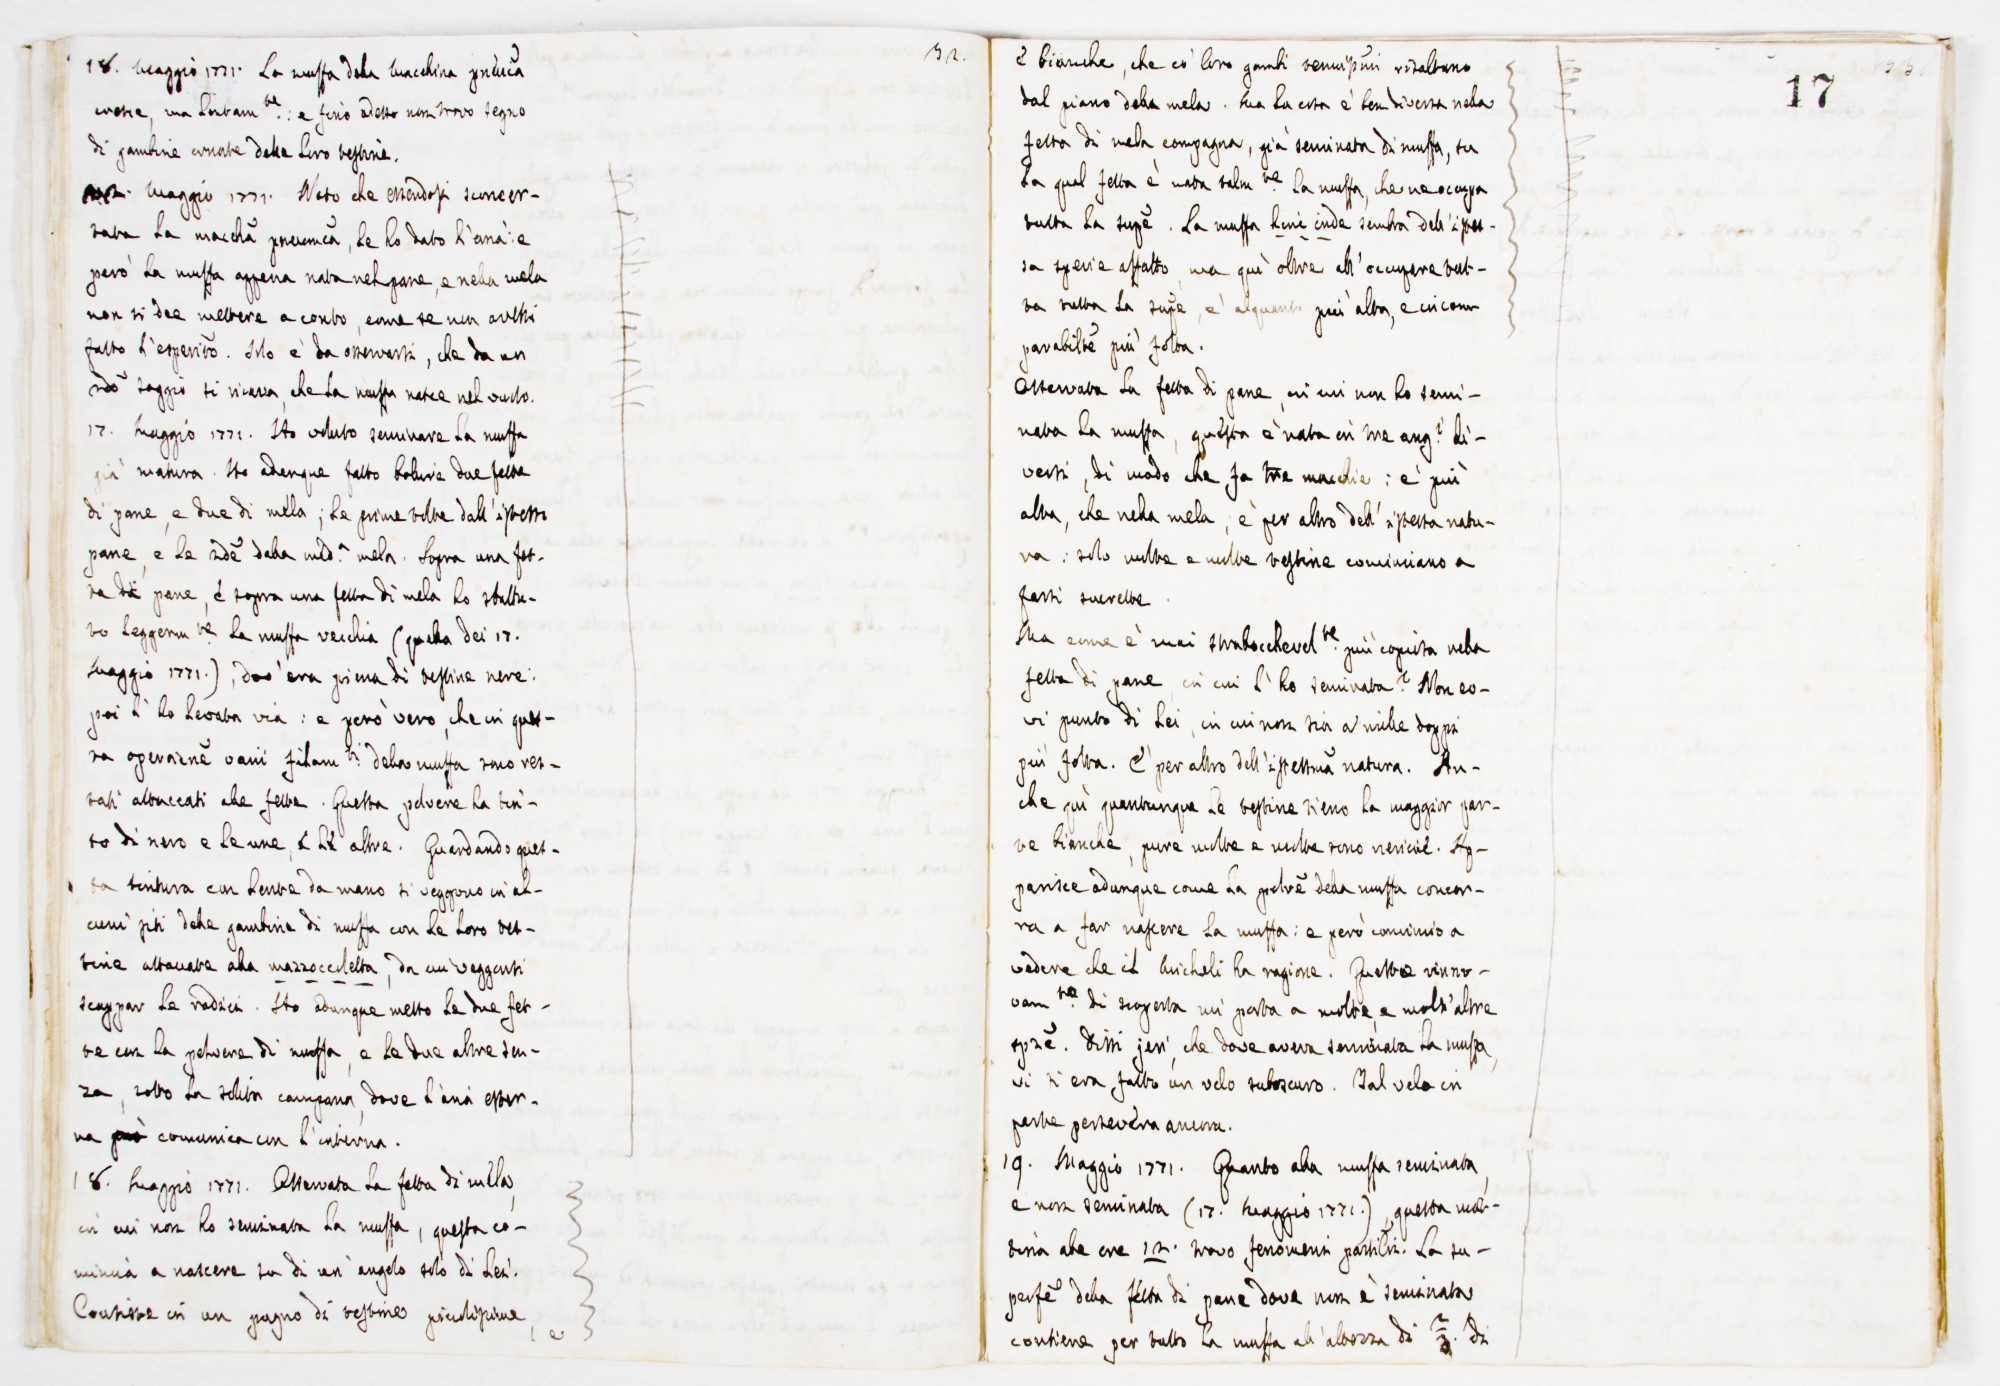 32.
18. Maggio 1771. La muffa della Macchina pneuca
cresce, ma lentam te: e fino adesso non trovo segno
di gambine ornate delle loro testine.
Maggio 1771. Noto che essendosi sconcer-
tata la macchã pneumcã, le ho dato l'aria: e
però la muffa appena nata nel pane, e nella mela
non si dee mettere a conto, come se non avessi
fatto l'esperitõ. Solo è da osservarsi, che da un
saggio si ricava, che la muffa nasce nel vuoto.
17. Maggio 1771. Ho voluto seminare la muffa
già matura. Ho adunque fatto bolire due fette
di pane, e due di mela; le prime tolte dall'istesso
pane, e le 2dẽ dalla med.a mela. Sopra una fet-
ta di pane, e sopra una fetta di mela ho sbattu-
to leggerm te la muffa vecchia (quella dei 17.
Maggio 1771.), era piena di testine nere:
poi l'ho levata via: e però vero, che in ques-
ta operaziẽ varii filam ti della muffa sono res-
tati attaccati alle fette. Questa polvere ha tin-
to di nero e le une, e le altre. Guardando ques-
ta tintura con lente da mano si veggono in al-
cuni siti delle gambine di muffa con le loro tes-
tine attaccate alla mazzoccoletta, da cui veggonsi
scappar le radici. Ho adunque messo le due fet-
te con la polvere di muffa, e le due altre sen-
za, sotto la solita campana, dove l'aria ester-
na comunica con l'interna.
18. Maggio 1771. Osservata la fetta di mela,
in cui non ho seminata la muffa, questa co-
mincia a nascere su di un angolo solo di lei.
Consiste in un pugno di testine piccolissime, e
17
33.
e bianche, che co' loro gambi risaltano
dal piano della mela. Ma la cosa è ben diversa nella
fetta di mela compagna, già seminata di muffa, su
la qual fetta è nata talm te la muffa, che ne occupa
tutta la supẽ. La muffa hinc inde sembra dell'istes-
sa spezie affatto, ma quì oltre all'occupare tut-
ta tutta la supẽ, è alquanto più alta, e incom-
parabiltẽ più folta.
Osservata la fetta di pane, in cui non ho semi-
nata la muffa, questa è nata in tre ang.i di-
versi, di modo che fa tre macchie: è più
alta, che nella mela; è per altro dell'istessa natu-
ra: solo molte e molte testine cominciano a
farsi nerette.
Ma come è mai strabocchevol te più copiosa nella
fetta di pane in cui l'ho seminata? Non ev-
vi punto di lei, in cui non sia a mille doppi
più folta. È per altro dell'istessmã natura. An-
che quì quantunque le testine sieno la maggior par-
te bianche, pure molte e molte sono nericcie. Ap-
parisce adunque come la polvẽ della muffa concor-
ra a far nascere la muffa: e però comincio a
vedere che il Micheli ha ragione. Questo rinno-
vam to di scoperta mi porta a molte, e molt'altre
spzẽ. Dissi jeri, che dove aveva seminata la muffa,
vi si era fatto un velo suboscuro. Tal velo in
parte persevera ancora.
19. Maggio 1771. Quanto alla muffa seminata,
e non seminata (17. Maggio 1771.), questa mat-
tina alle ore 12. trovo fenomeni . La su-
perfẽ della fetta di pane dove non è seminata
contiene per tutto la muffa all'altezza di 2/3. di